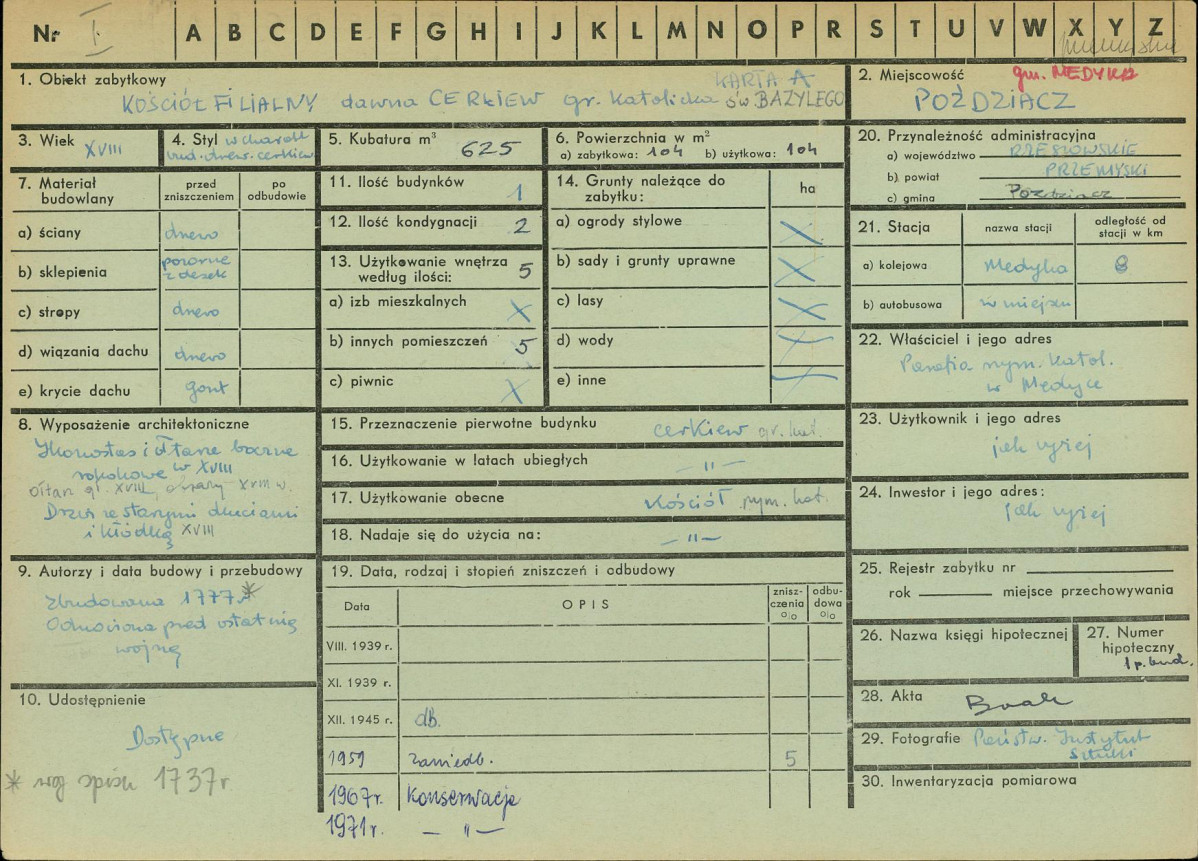 Nr I A B C D E F G H I J K L M N O P R S T U V W X Y Z
1. Obiekt zabytkowy
KARTA A
KOŚCIÓŁ FILIALNY dawna CERKIEW gr. katolicka św BAZYLEGO
2. Miejscowość gm. MEDYKA
POŹDZIACZ
3. Wiek XVIII
4. Styl w charakt.
bud. drew. cerkiew
5. Kubatura m³ 625
6. Powierzchnia w m²
a) zabytkowa: 104 b) użytkowa: 104
20. Przynależność administracyjna
a) województwo RZESZOWSKIE
b) powiat PRZEMYSKI
c) gmina Poździacz
7. Materiał budowlany
przed zniszczeniem
po odbudowie
a) ściany drewo
b) sklepienia pozorne
z desek
c) stropy drewo
d) wiązania dachu drewo
e) krycie dachu gont
11. Ilość budynków 1
12. Ilość kondygnacji 2
13. Użytkowanie wnętrza
według ilości: 5
a) izb mieszkalnych X
b) innych pomieszczeń 5
c) piwnic X
14. Grunty należące do
zabytku: ha
a) ogrody stylowe X
b) sady i grunty uprawne X
c) lasy X
d) wody X
e) inne
21. Stacja
nazwa stacji
odległość od
stacji w km
a) kolejowa Medyka 8
b) autobusowa w miejscu
22. Właściciel i jego adres
Parafia rzym. katol.
w Medyce
8. Wyposażenie architektoniczne
Ikonostas i ołtarze boczne
rokokowe w XVIII
ołtarz gł. XVIII, obrazy XVIII w.
Drzwi ze starymi okuciami
i kłódką XVIII
15. Przeznaczenie pierwotne budynku cerkiew gr. kat.
16. Użytkowanie w latach ubiegłych — " —
17. Użytkowanie obecne Kościół rzym. kat.
18. Nadaje się do użycia na: — " —
23. Użytkownik i jego adres
jak wyżej
24. Inwestor i jego adres:
jak wyżej
9. Autorzy i data budowy i przebudowy
Zbudowana 1777r*
Odnowiona przed ostatnią
wojną
19. Data, rodzaj i stopień zniszczeń i odbudowy
Data OPIS
znisz-
czenia
o/o
odbu-
dowa
o/o
VIII. 1939 r.
XI. 1939 r.
XII. 1945 r. db.
1959 zaniedb. 5
1967r. Konserwacja
1971r. — " —
25. Rejestr zabytku nr
rok miejsce przechowywania
26. Nazwa księgi hipotecznej
27. Numer
hipoteczny
1 p. bud.
28. Akta Brak
29. Fotografie Państw. Instytut
Sztuki
30. Inwentaryzacja pomiarowa
10. Udostępnienie
Dostępne
* wg spisu 1737r